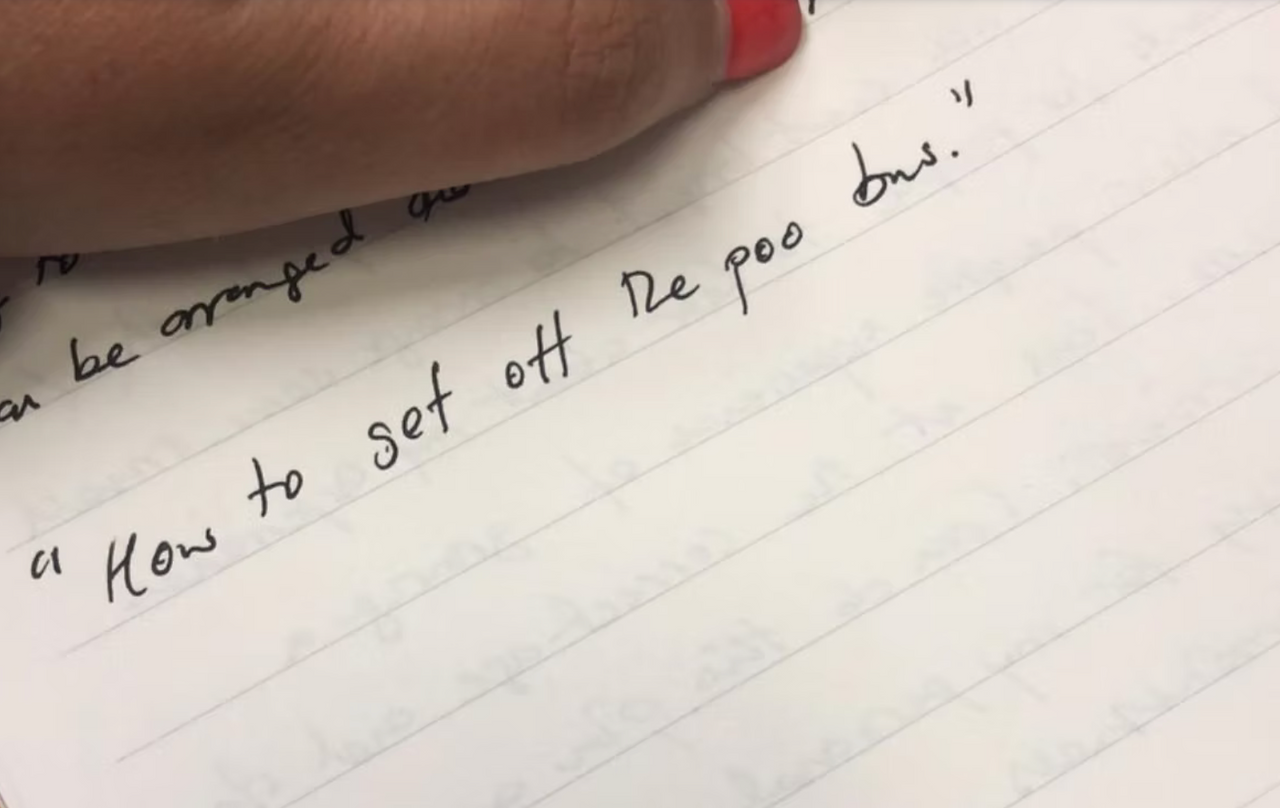 be arranged
"How to set off the poo bus."